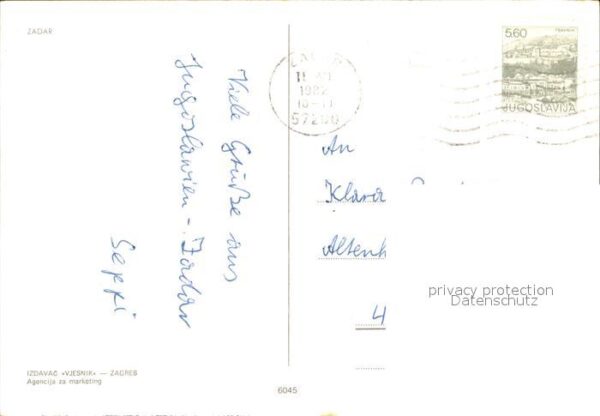 ZADAR
Viele Grüße aus
Jugoslawien - Zadar
Seppi
IZDAVAČ «VJESNIK» — ZAGREB
Agencija za marketing
6045
1982
57200
5,60
JUGOSLAVIJA
An
Klara
Altenh
4
privacy protection
Datenschutz